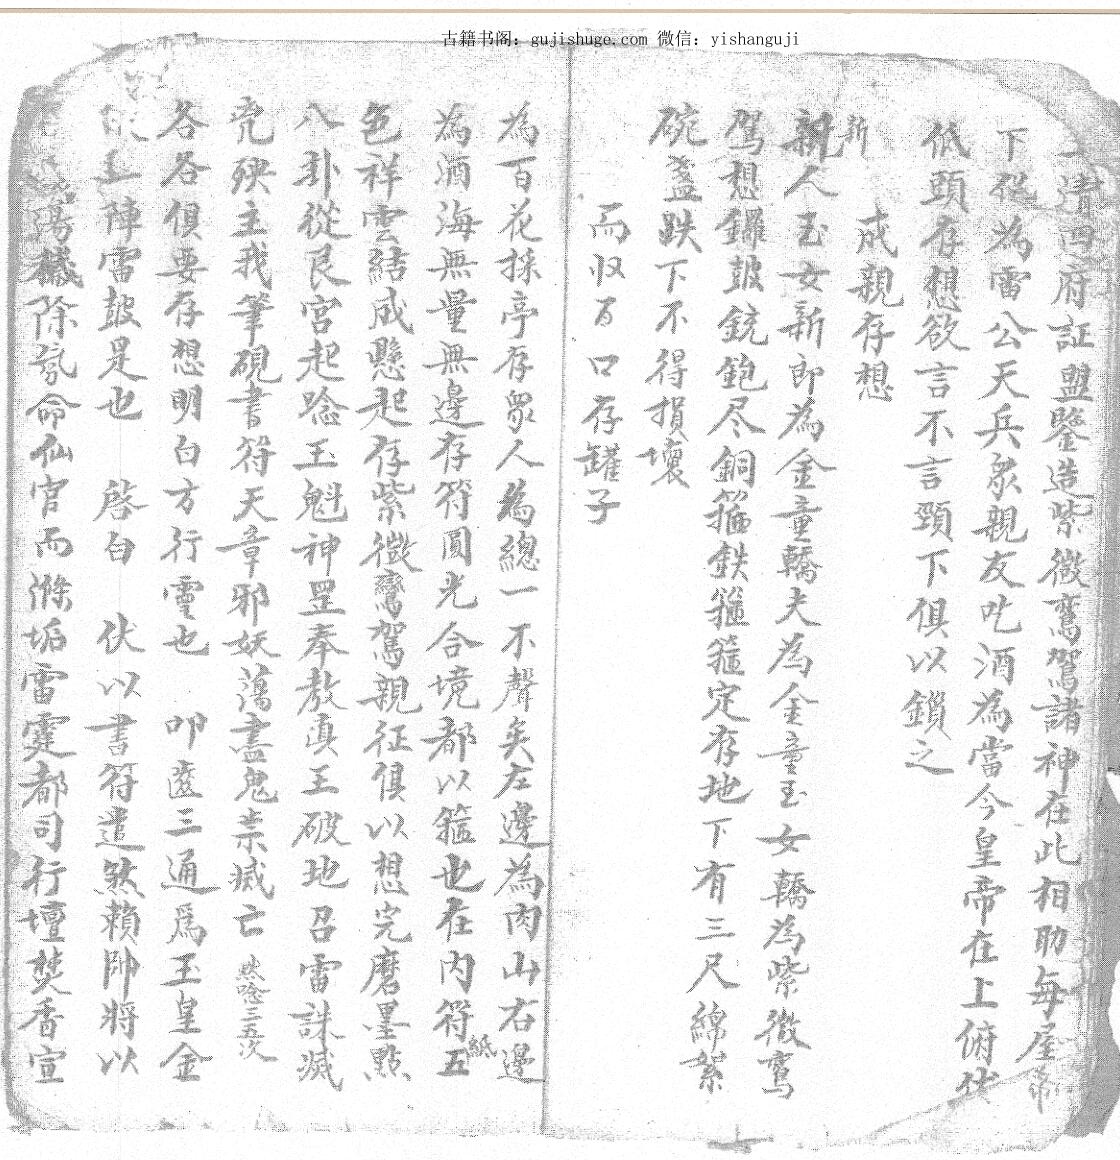 古籍书阁：gujishuge.com 微信：yishanguji
上清四府証盟鑒造紫微鸞駕諸神在此相助每屋
下徒為雷公天兵众親友吃酒為當今皇帝在上俯伏
低頭存想欲言不言頸下俱以鎖之
成親存想
新
親人玉女新郎為金童轎夫為金童玉女轎為紫微鸞
駕想鑼鼓銃鉋尽銅箍鉄箍箍定存地下有三尺綿絮
碗盞跌下不得損壞
而収百口存罐子
為百花採亭存眾人為總一不聲矣左邊為肉山右邊
為酒海無量無邊存符圓光合境都以箍也在內符五
紙
色祥雲結成懸起存紫微鸞駕親征俱以想完磨墨點
八卦從艮宮起唸玉魁神罡奉敖真王破地召雷誅滅
兇殃主我筆硯書符天章邪妖蕩盡鬼祟滅亡 然唸三五次
各各俱要存想明白方行靈也 叩齒三通為玉皇金
上陣雷鼓是也 啓白 伏以書符遣煞賴帥將以
蕩穢除氛命仙官而滌垢雷霆都司行壇焚香宣